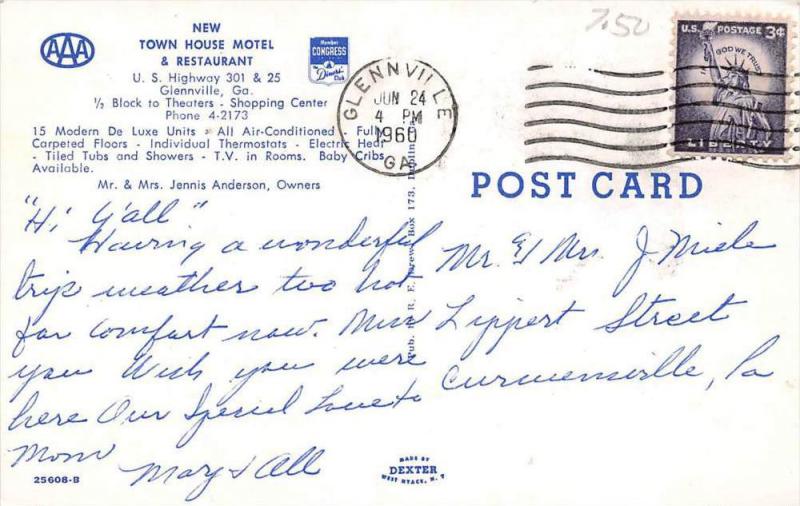 7.50
AAA
NEW
TOWN HOUSE MOTEL
& RESTAURANT
U. S. Highway 301 & 25
Glennville, Ga.
½ Block to Theaters - Shopping Center
Phone 4-2173
15 Modern De Luxe Units - All Air-Conditioned - Fully
Carpeted Floors - Individual Thermostats - Electric Heat
- Tiled Tubs and Showers - T.V. in Rooms. Baby Cribs
Available.
Mr. & Mrs. Jennis Anderson, Owners
Member
CONGRESS
&
Diners'
Club
GLENNVILLE
JUN 24
4 PM
1960
GA.
U.S. POSTAGE 3¢
IN GOD WE TRUST
LIBERTY
POST CARD
"Hi Y'all"
Having a wonderful
trip weather too hot
for comfort now. Miss
you Wish you were
here Our Special Love to
Mom
Mary & All
Mr. & Mrs. J Miele
Lippert Street
Curwensville, Pa
Pub. by R. E. Drew, Box 173, Dublin, Ga.
MADE BY
DEXTER
WEST NYACK, N. Y
25608-B